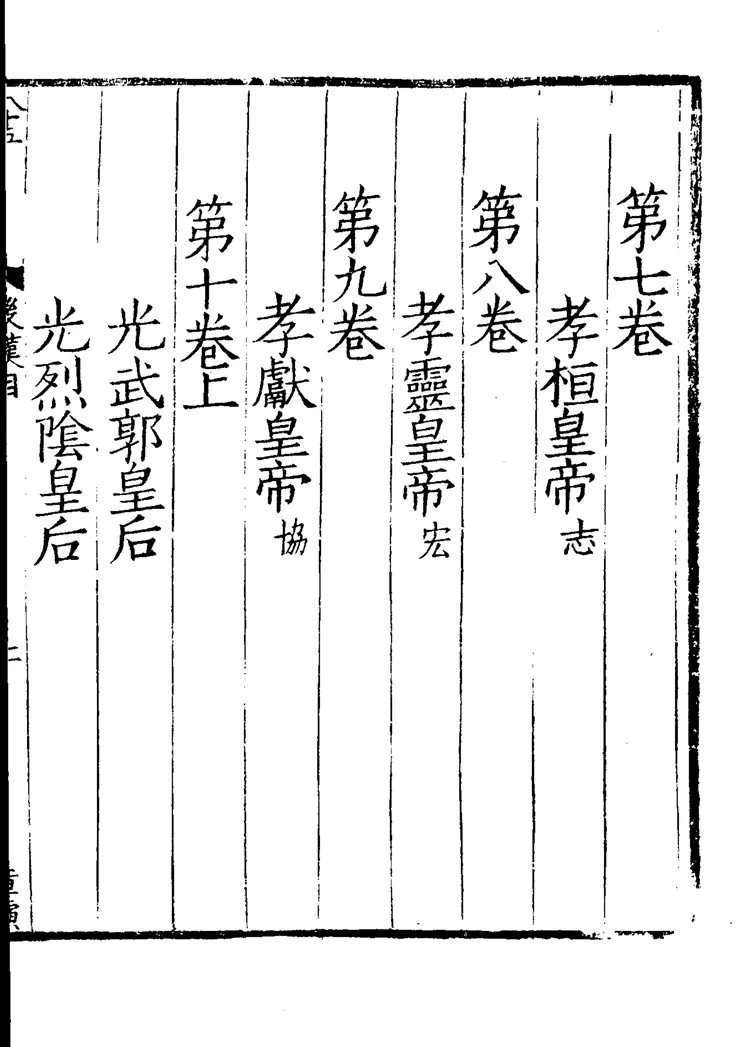 第七卷
孝桓皇帝 志
第八卷
孝靈皇帝 宏
第九卷
孝獻皇帝 協
第十卷上
光武郭皇后
光烈陰皇后
後漢目
二